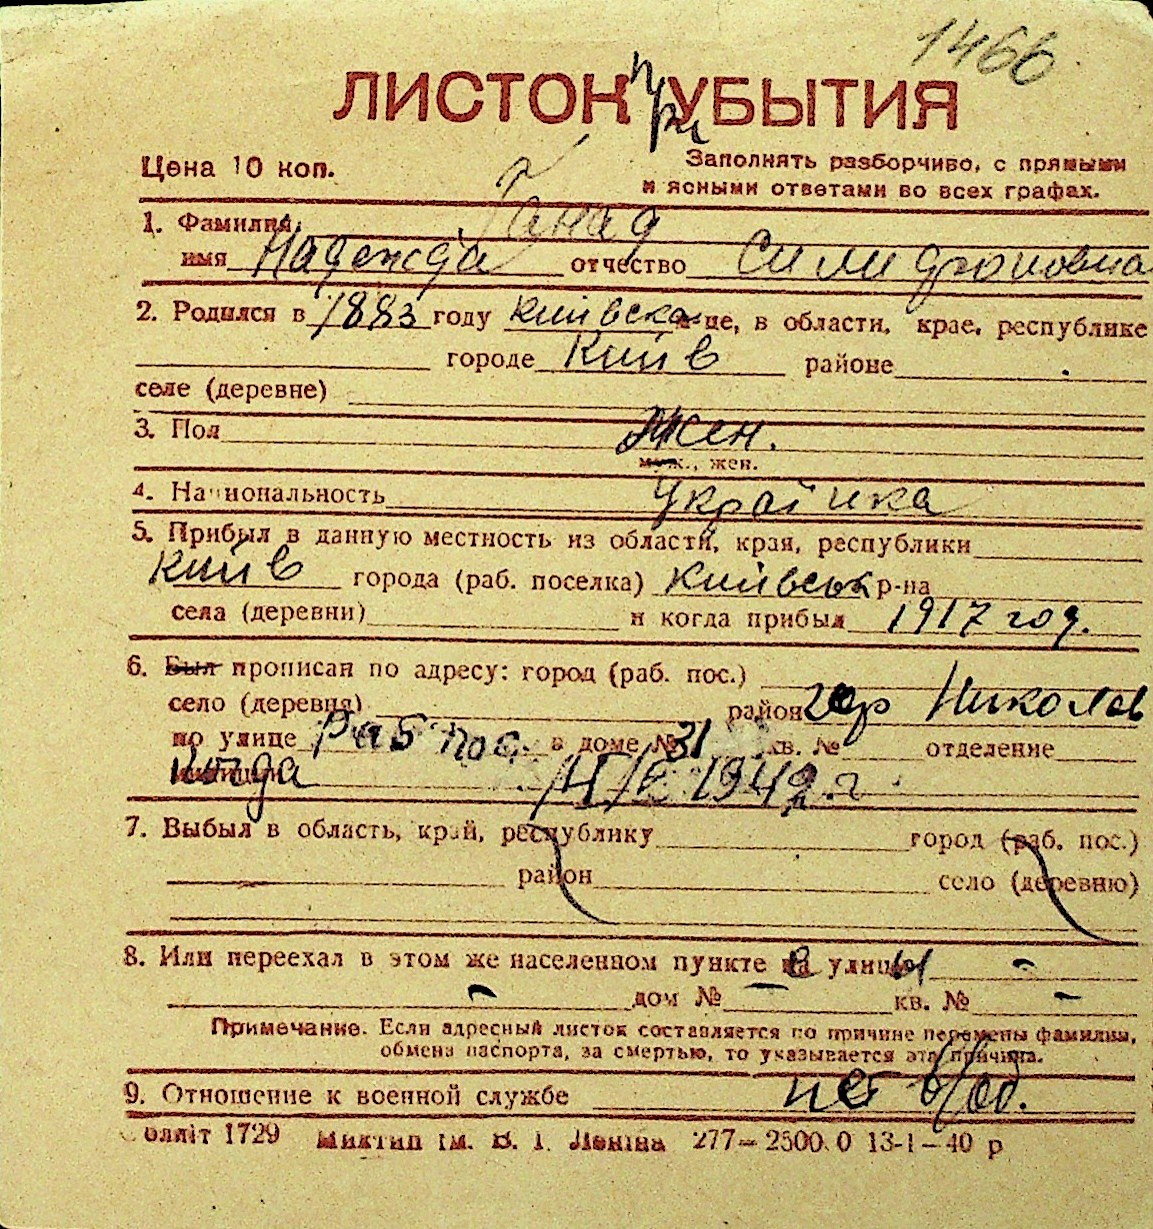 1466
ЛИСТОК при УБЫТИЯ
Цена 10 коп.
Заполнять разборчиво, с прямыми
и ясными ответами во всех графах.
1. Фамилия Ганад
имя Надежда отчество
2. Родился в 1883 году Київска це, в области, крае, республике
городе Київ районе
селе (деревне)
3. Пол Жен.
муж., жен.
4. Национальность Українка
5. Прибыл в данную местность из области, края, республики
Київ города (раб. поселка) Київськ р-на
села (деревни) и когда прибыл 1917 год.
6. Был прописан по адресу: город (раб. пос.)
село (деревня) район гор Николаев
по улице Раб пос. в доме № 31 кв. № отделение
милиции Когда 1942 г
7. Выбыл в область, край, республику город (раб. пос.)
район село (деревню)
8. Или переехал в этом же населенном пункте на улицы -
- дом № - кв. № -
Примечание. Если адресный листок составляется по причине перемены фамилии,
обмена паспорта, за смертью, то указывается эта причина.
9. Отношение к военной службе нет в/об.
Облліт 1729 Миктип ім. В. І. Леніна 277—2500.0 13-1—40 р